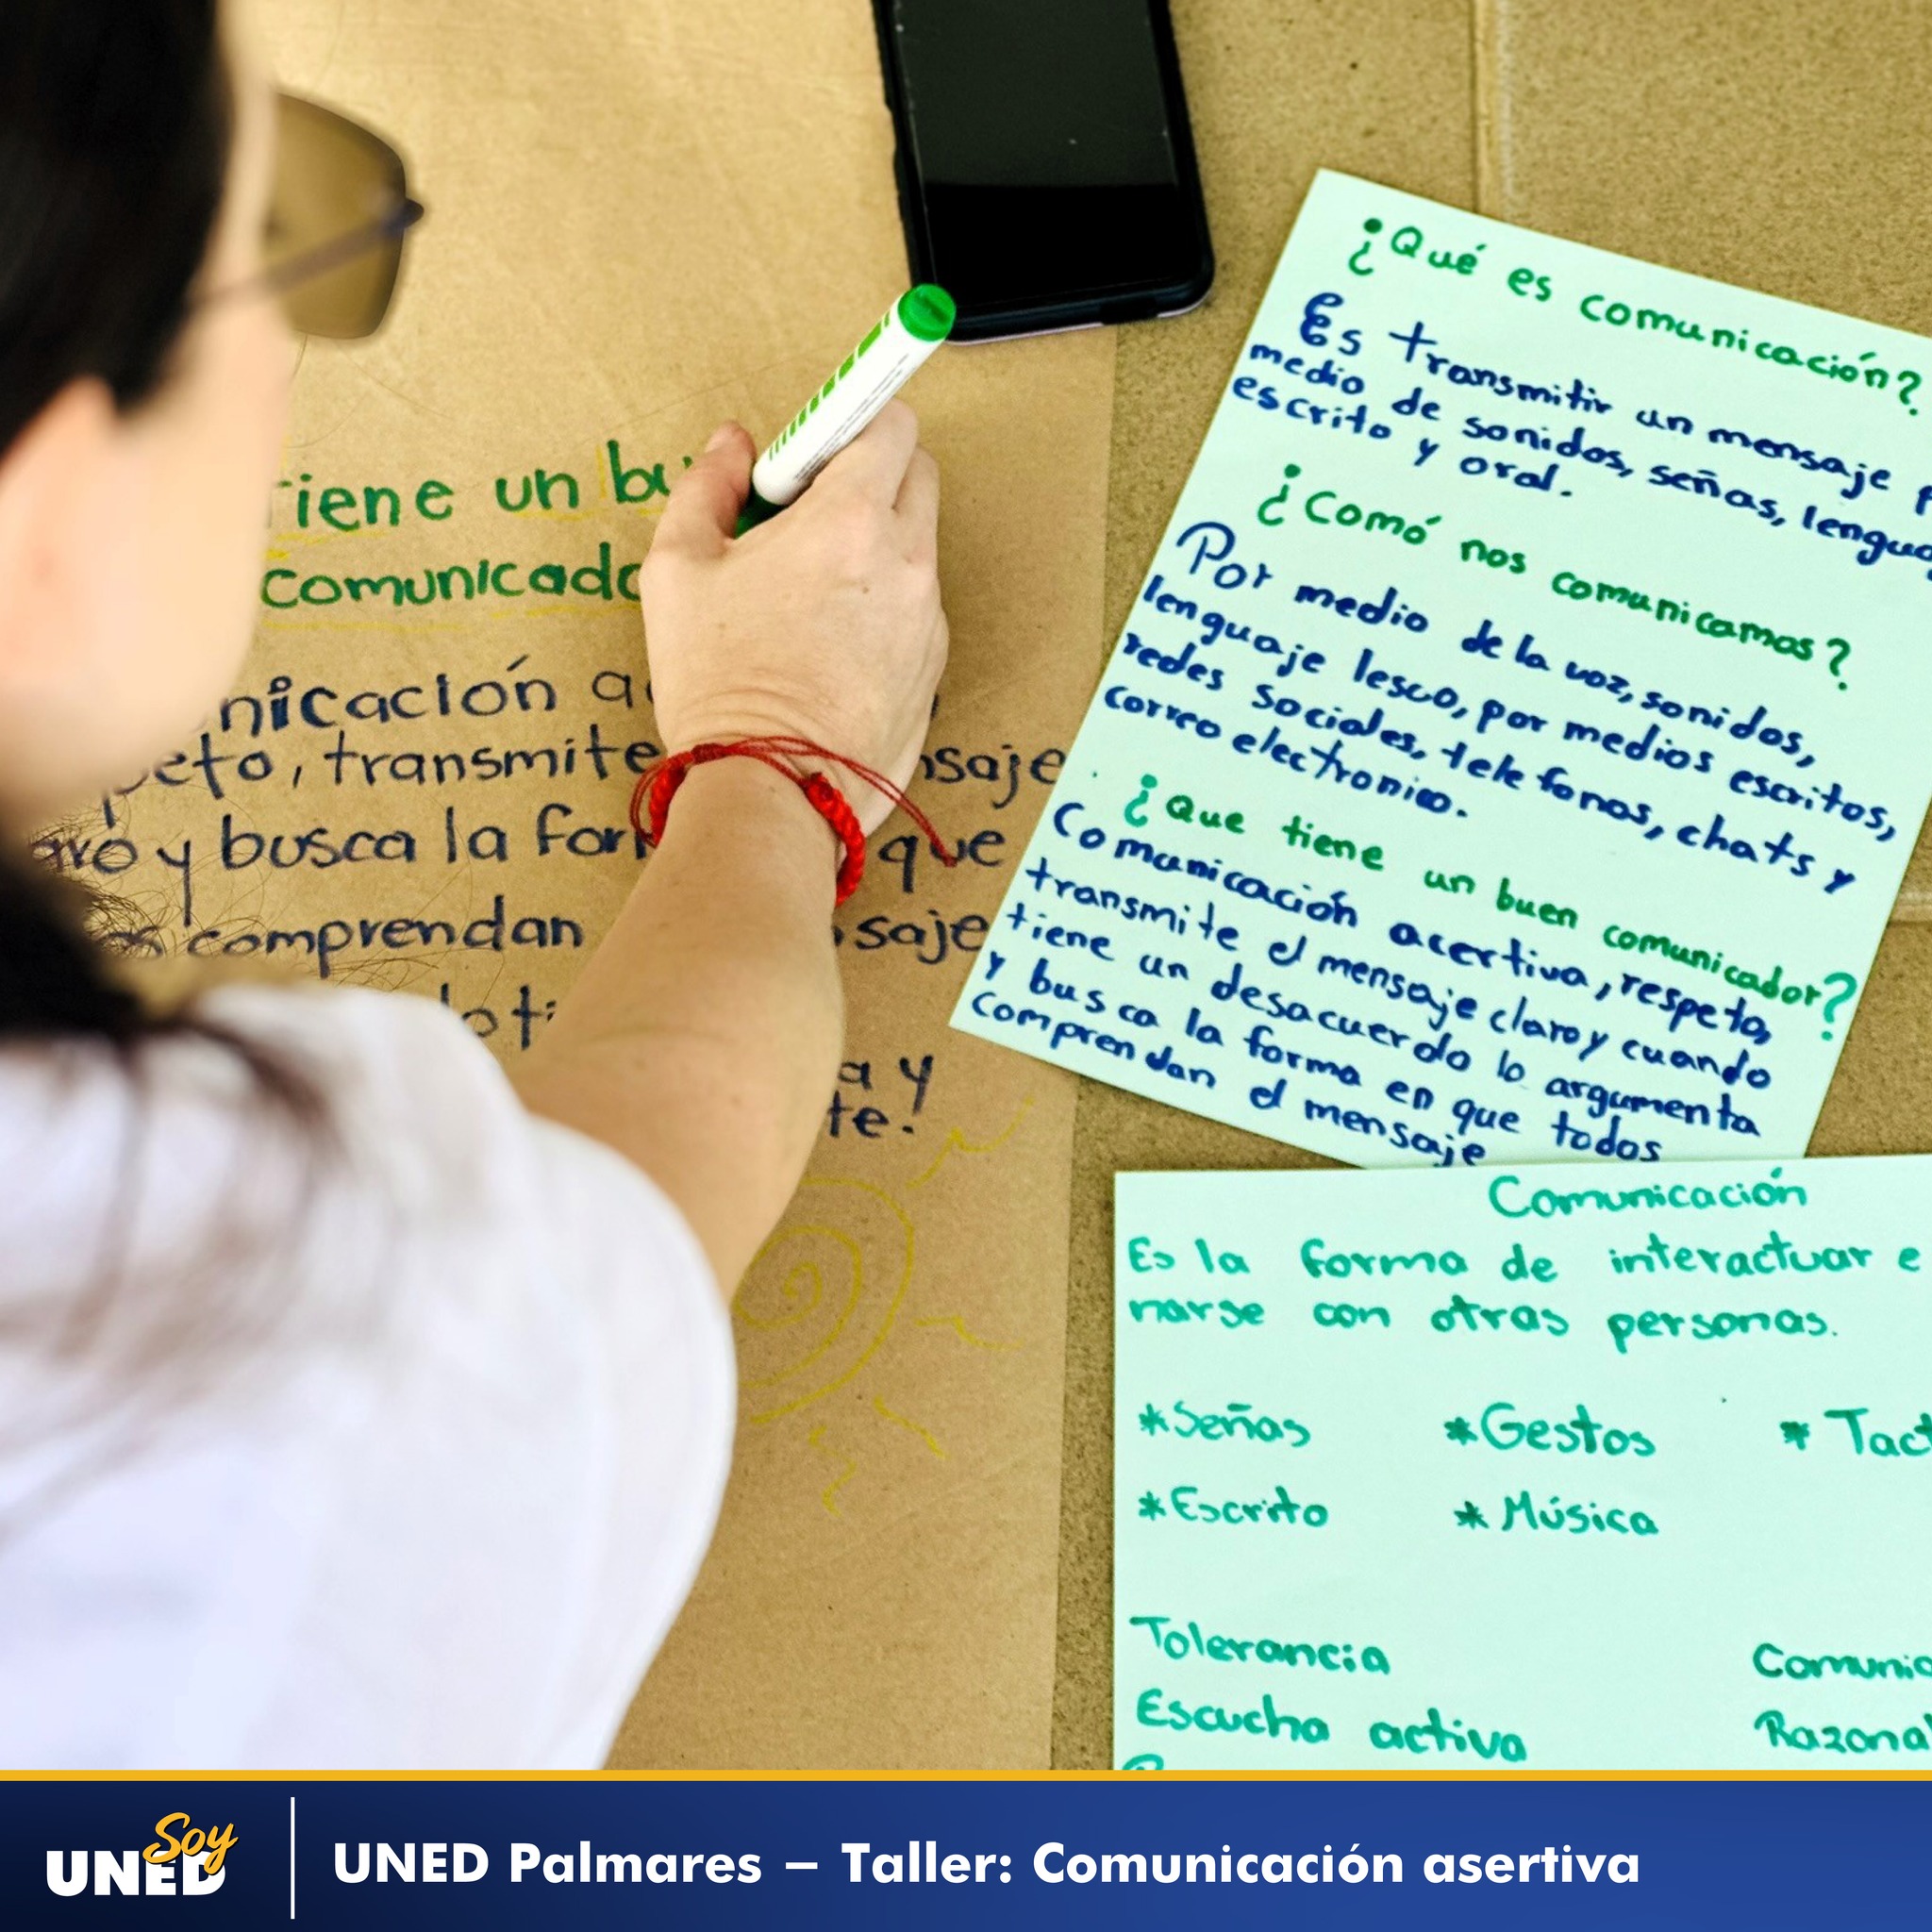 tiene un
comunicado
nicación
peto, transmite
y busca la que
comprendan
a y
te.
¿Qué es comunicación?
Es transmitir un mensaje
medio de sonidos, señas,
escrito y oral.
¿Comó nos comunicamos?
Por medio de la voz, sonidos,
lenguaje lesco, por medios escritos,
redes sociales, telefonos, chats y
correo electronico.
¿Que tiene un buen comunicador?
Comunicación acertiva, respeto,
transmite el mensaje claro y cuando
tiene un desacuerdo lo argumenta
y busca la forma en que todos
comprendan el mensaje
Comunicación
Es la forma de interactuar e
narse con otras personas.
*Señas *Gestos * Tact
*Escrito * Música
Tolerancia Comunic
Escucha activa Razona
Soy
UNED
UNED Palmares – Taller: Comunicación asertiva